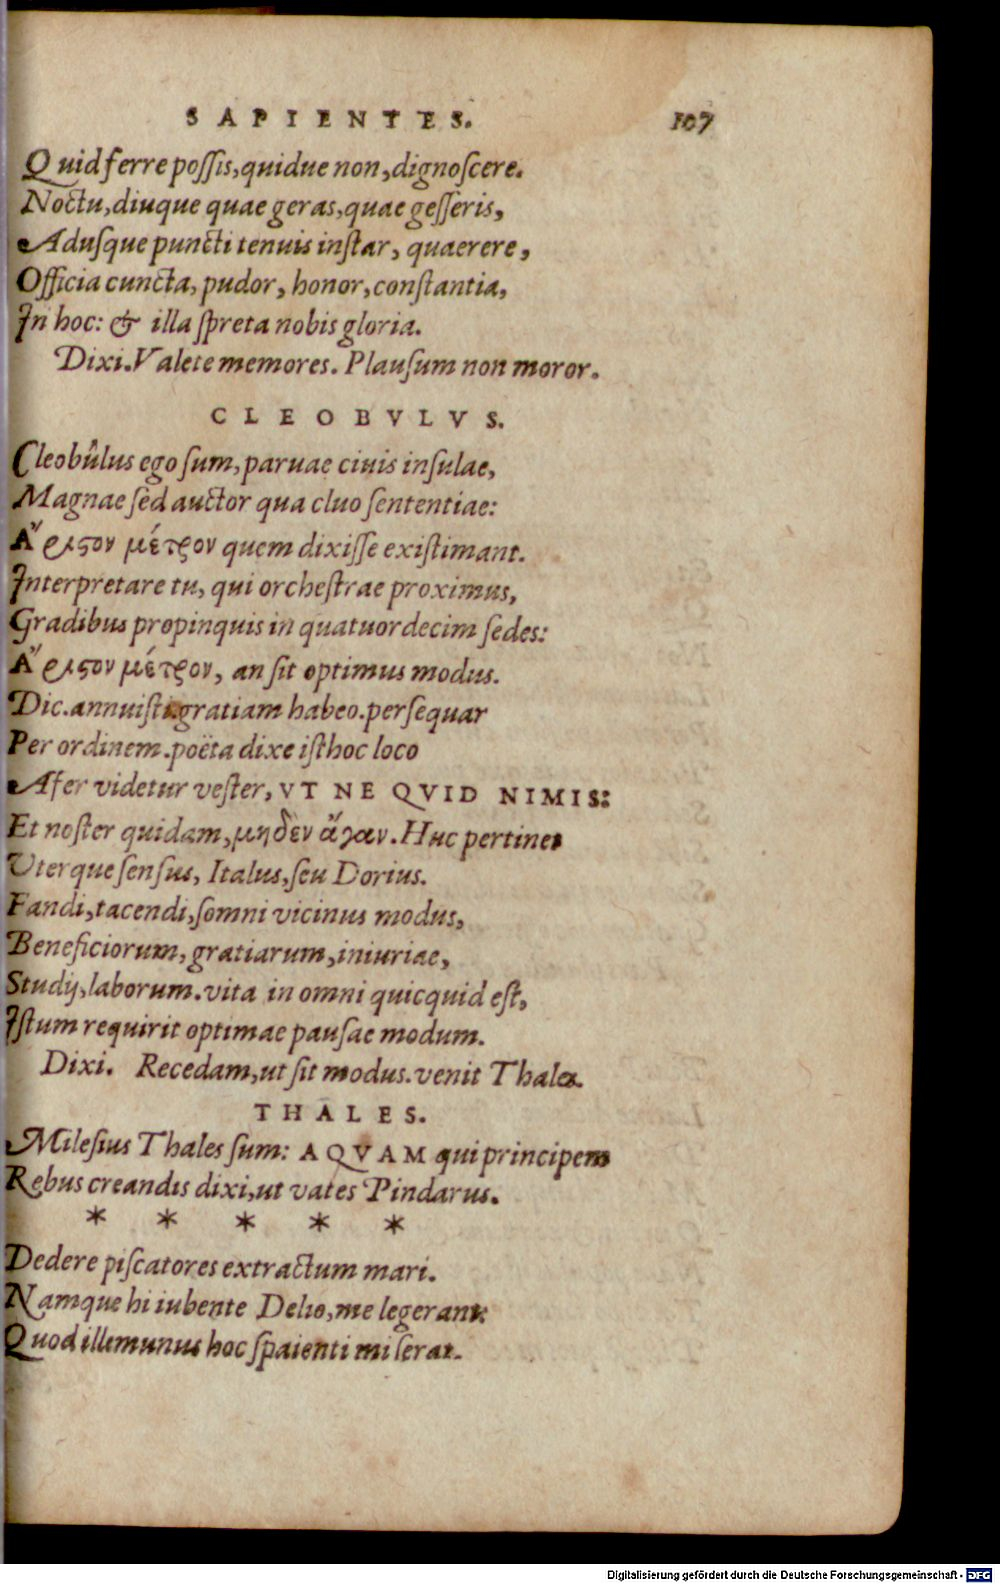 SAPIENTES. 107
Quid ferre poſſis, quidue non, dignoſcere.
Noctu, diuque quae geras, quae geſſeris,
Aduſque puncti tenuis inſtar, quaerere,
Officia cuncta, pudor, honor, conſtantia,
In hoc: & illa ſpreta nobis gloria.
Dixi. Valete memores. Plauſum non moror.
CLEOBVLVS.
Cleobûlus ego ſum, paruae ciuis inſulae,
Magnae ſed auctor qua cluo ſententiae:
Ἄριϛον μέτρον quem dixiſſe exiſtimant.
Interpretare tu, qui orcheſtrae proximus,
Gradibus propinquis in quatuordecim ſedes:
Ἄριϛον μέτρον, an ſit optimus modus.
Dic. annuiſti. gratiam habeo. perſequar
Per ordinem. poëta dixe iſthoc loco
Afer videtur veſter, VT NE QVID NIMIS:
Et noſter quidam, μηδὲν ἄγαν. Huc pertinet
Vterque ſenſus, Italus, ſeu Dorius.
Fandi, tacendi, ſomni vicinus modus,
Beneficiorum, gratiarum, iniuriae,
Studij, laborum. vita in omni quicquid eſt,
Iſtum requirit optimae pauſae modum.
Dixi. Recedam, ut ſit modus. venit Thales.
THALES.
Mileſius Thales ſum: AQVAM qui principem
Rebus creandis dixi, ut vates Pindarus.
* * * * *
Dedere piſcatores extractum mari.
Namque hi iubente Delio, me legerant
Quod ille munus hoc ſpaienti miſerat.
Digitalisierung gefördert durch die Deutsche Forschungsgemeinschaft - DFG